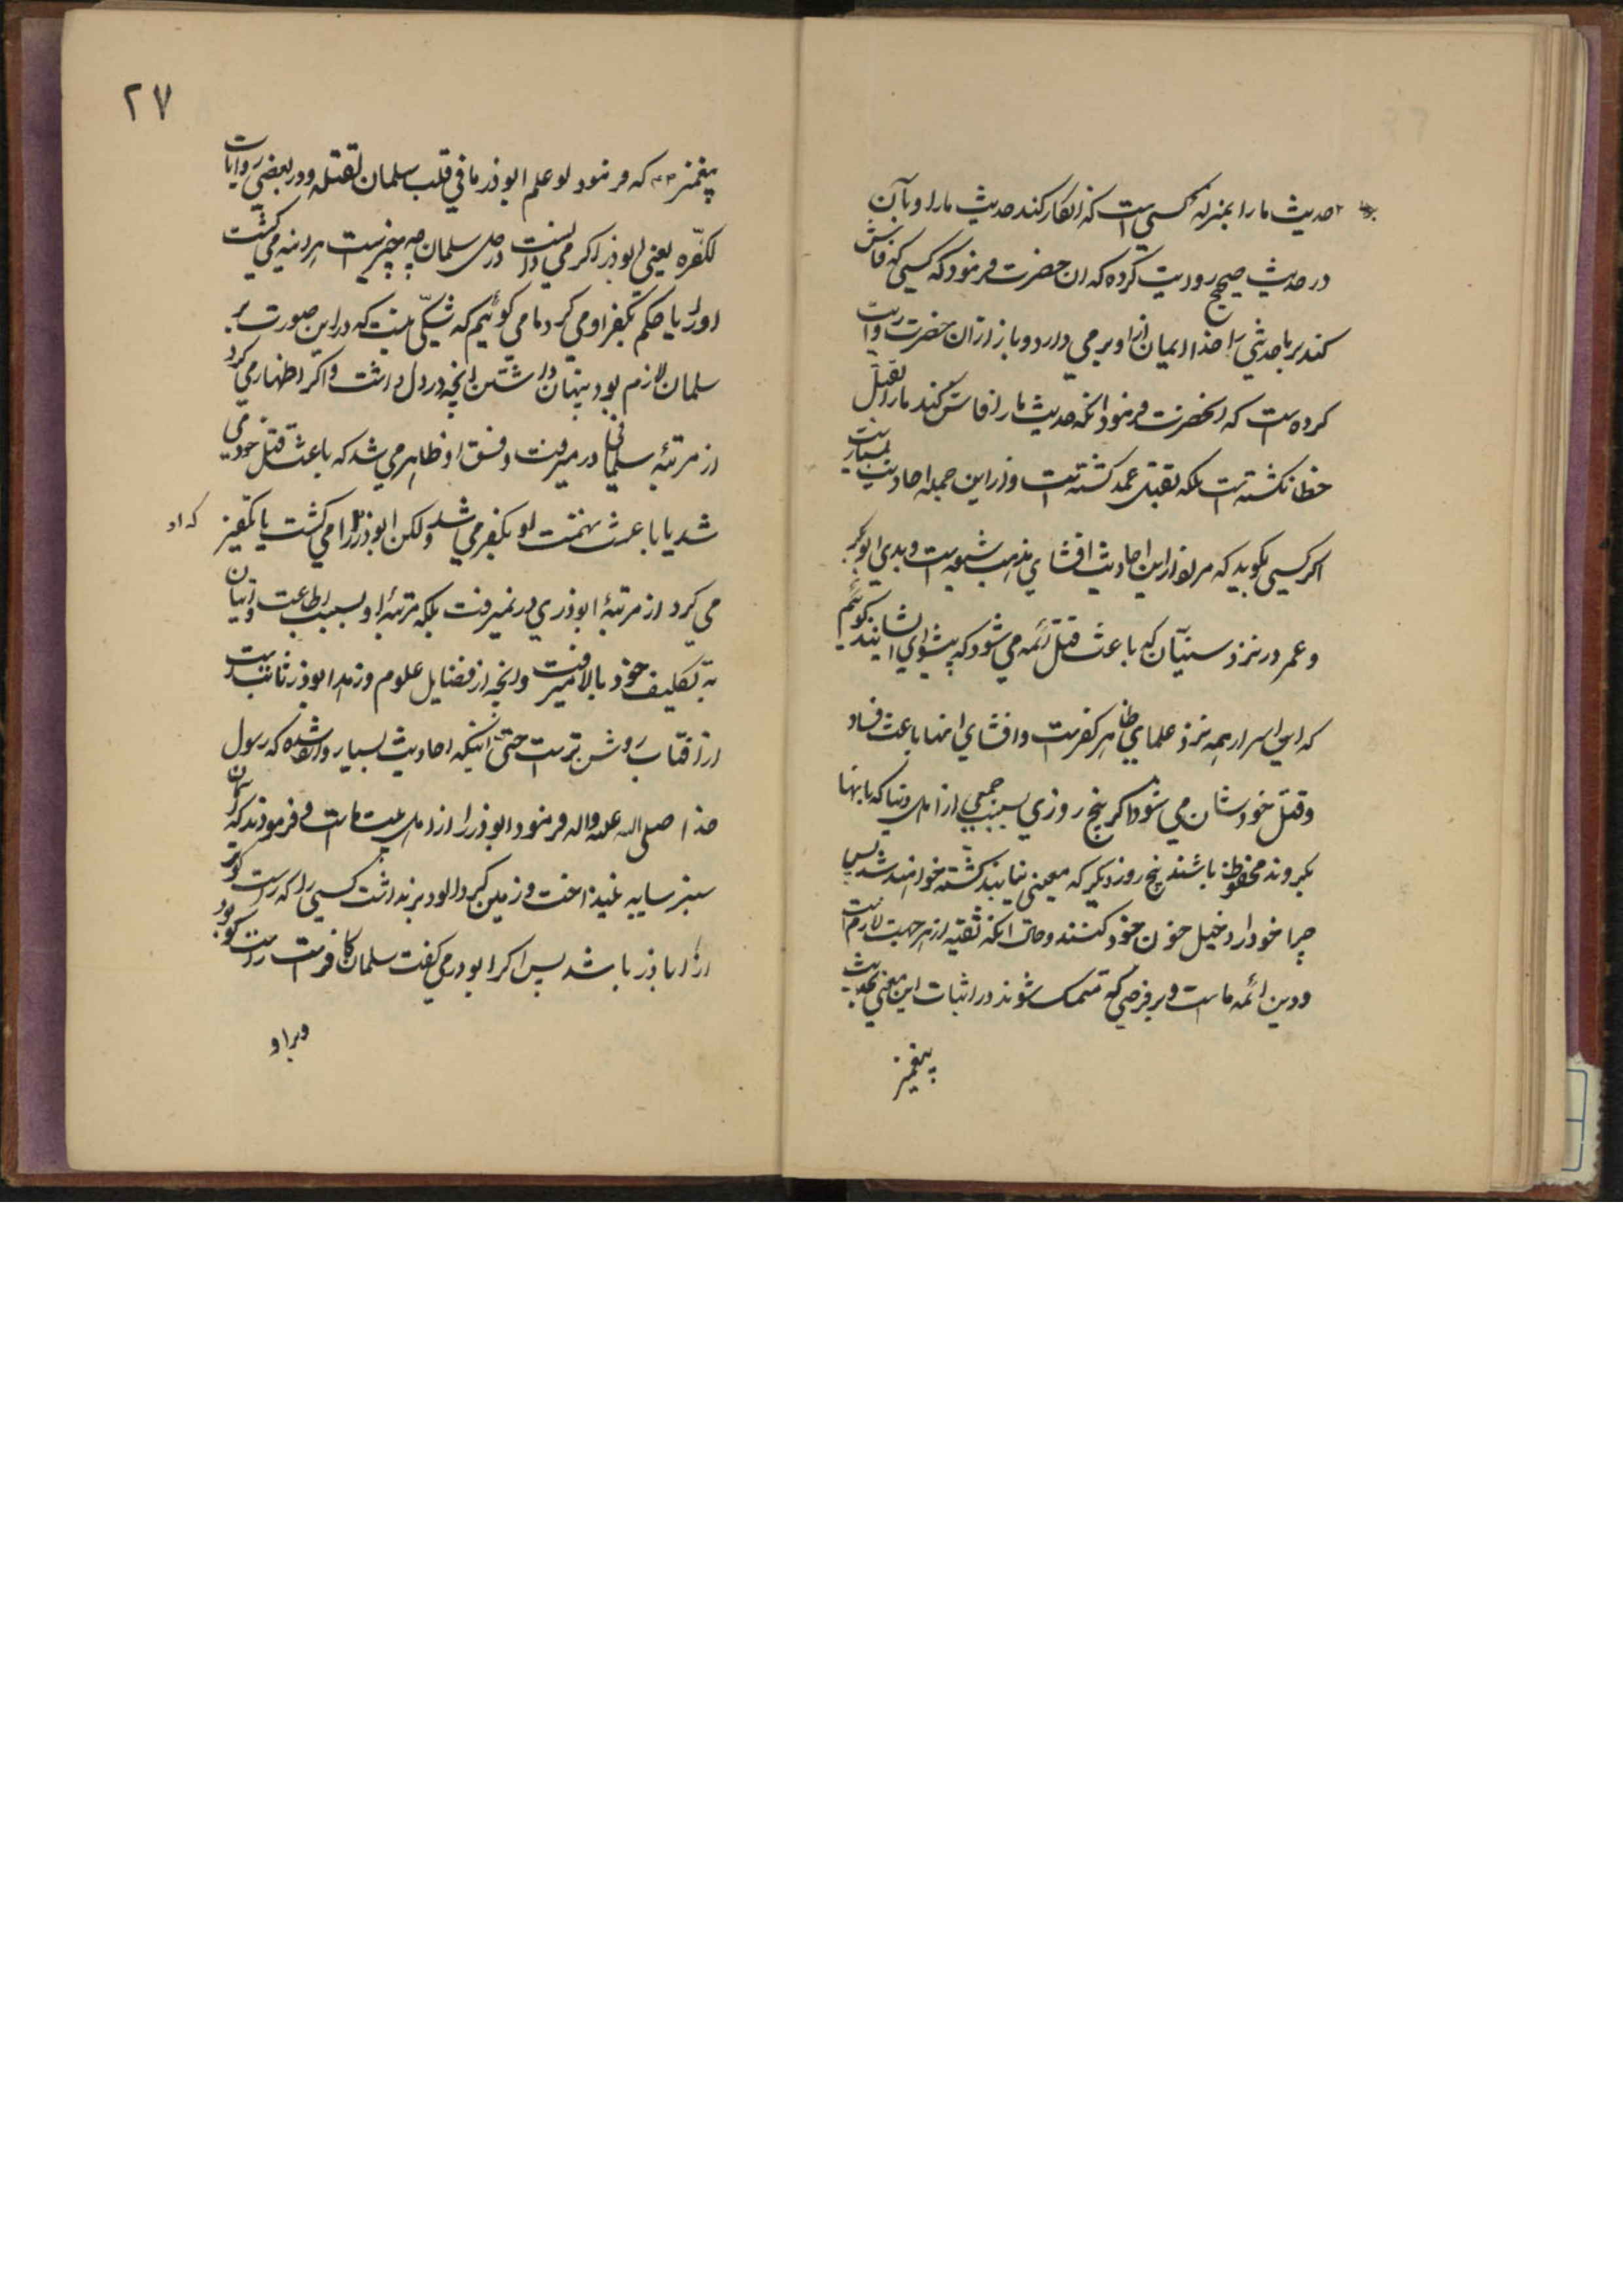 حدیث ما را بمنزله کسی است که انکار کند حدیث ما را و بآن
در حدیث صحیح روایت کرده که آن حضرت فرمود که کسی که فاش
کند بر ما حدیثی را خدا ایمان را از او برمی دارد و باز از آن حضرت روایت
کرده است که آنحضرت فرمود آنکه حدیث ما را فاش کند ما را بقتل
خطا نکشته است بلکه بقتل عمد کشته است و از این جمله احادیث بسیار است
اگر کسی بگوید که مراد از این احادیث افشای مذهب شیعه است و بدی ابوبکر
و عمر در نزد سنیان که باعث قتل ائمه می شود که پیشوای ایشانند گوئیم
که این اسرار همه نزد علمای ظاهر کفر است و افشای اینها باعث فساد
و قتل خودشان می شود اگر پنج روزی بسبب جمعی از اهل دنیا که بانها
بگروند محفوظ باشند پنج روز دیگر که معینی نیابند کشته خواهند شد پس
چرا خود را دخیل خون خود کنند و حال آنکه تقیه از هر جهت لازم است
و دین ائمه ما است و بر فرضی که متمسک شوند در اثبات این معنی بحدیث
پیغمبر
۲۷
پیغمبر که فرمود لو علم ابوذر ما فی قلب سلمان لقتله و در بعضی روایات
لکفره یعنی ابوذر اگر می دانست در دل سلمان چه چیز است هر اینه می کشت
او را یا حکم بکفر او می کرد ما می گوئیم که شکی نیست که در این صورت بر
سلمان لازم بود پنهان داشتن انچه در دل داشت و اگر اظهار می کرد
از مرتبه سلمانی در میرفت و فسق او ظاهر می شد که باعث قتل خود می
شد یا باعث تهمت او بکفر می شد و لکن ابوذر او را می کشت یا تکفیر
که او
می کرد از مرتبه ابوذری در نمیرفت بلکه مرتبه او بسبب اطاعت و اتیان
به تکلیف خود بالا میرفت و انچه از فضایل علوم و زهد ابوذر ثابت است
از افتاب روشن تر است حتی اینکه احادیث بسیار وارد شده که رسول
خدا صلی الله علیه و اله فرمود ابوذر از اهل بیت ما است و فرمودند که آسمان
سبز سایه نینداخت و زمین گرد الود برنداشت کسی را که راست گوتر
از اباذر باشد پس اگر ابوذر می گفت سلمان کافر است راست گو بود
و بر او